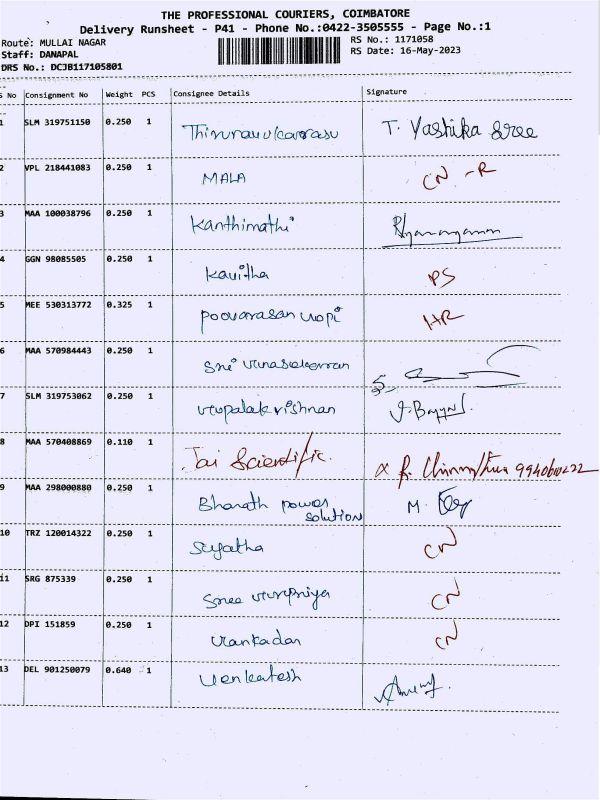 THE PROFESSIONAL COURIERS, COIMBATORE
Delivery Runsheet - P41 - Phone No.:0422-3505555 - Page No.:1
Route: MULLAI NAGAR RS No.: 1171058
Staff: DANAPAL RS Date: 16-May-2023
DRS No.: DCJB117105801
S No Consignment No Weight PCS Consignee Details Signature
1 SLM 319751150 0.250 1 T. Yashika Sree
2 VPL 218441083 0.250 1 MALA CN -R
3 MAA 100038796 0.250 1 Kanthimathi
4 GGN 98085505 0.250 1 Kavitha PS
5 MEE 530313772 0.325 1 Poovarasan HR
6 MAA 570984443 0.250 1 Sri
7 SLM 319753062 0.250 1
8 MAA 570408869 0.110 1 Jai Scientific.
9 MAA 298000880 0.250 1 Bharath power M.
solution
10 TRZ 120014322 0.250 1 CN
11 SRG 875339 0.250 1 Sree CN
12 DPI 151859 0.250 1 CN
13 DEL 901250079 0.640 1 Venkatesh